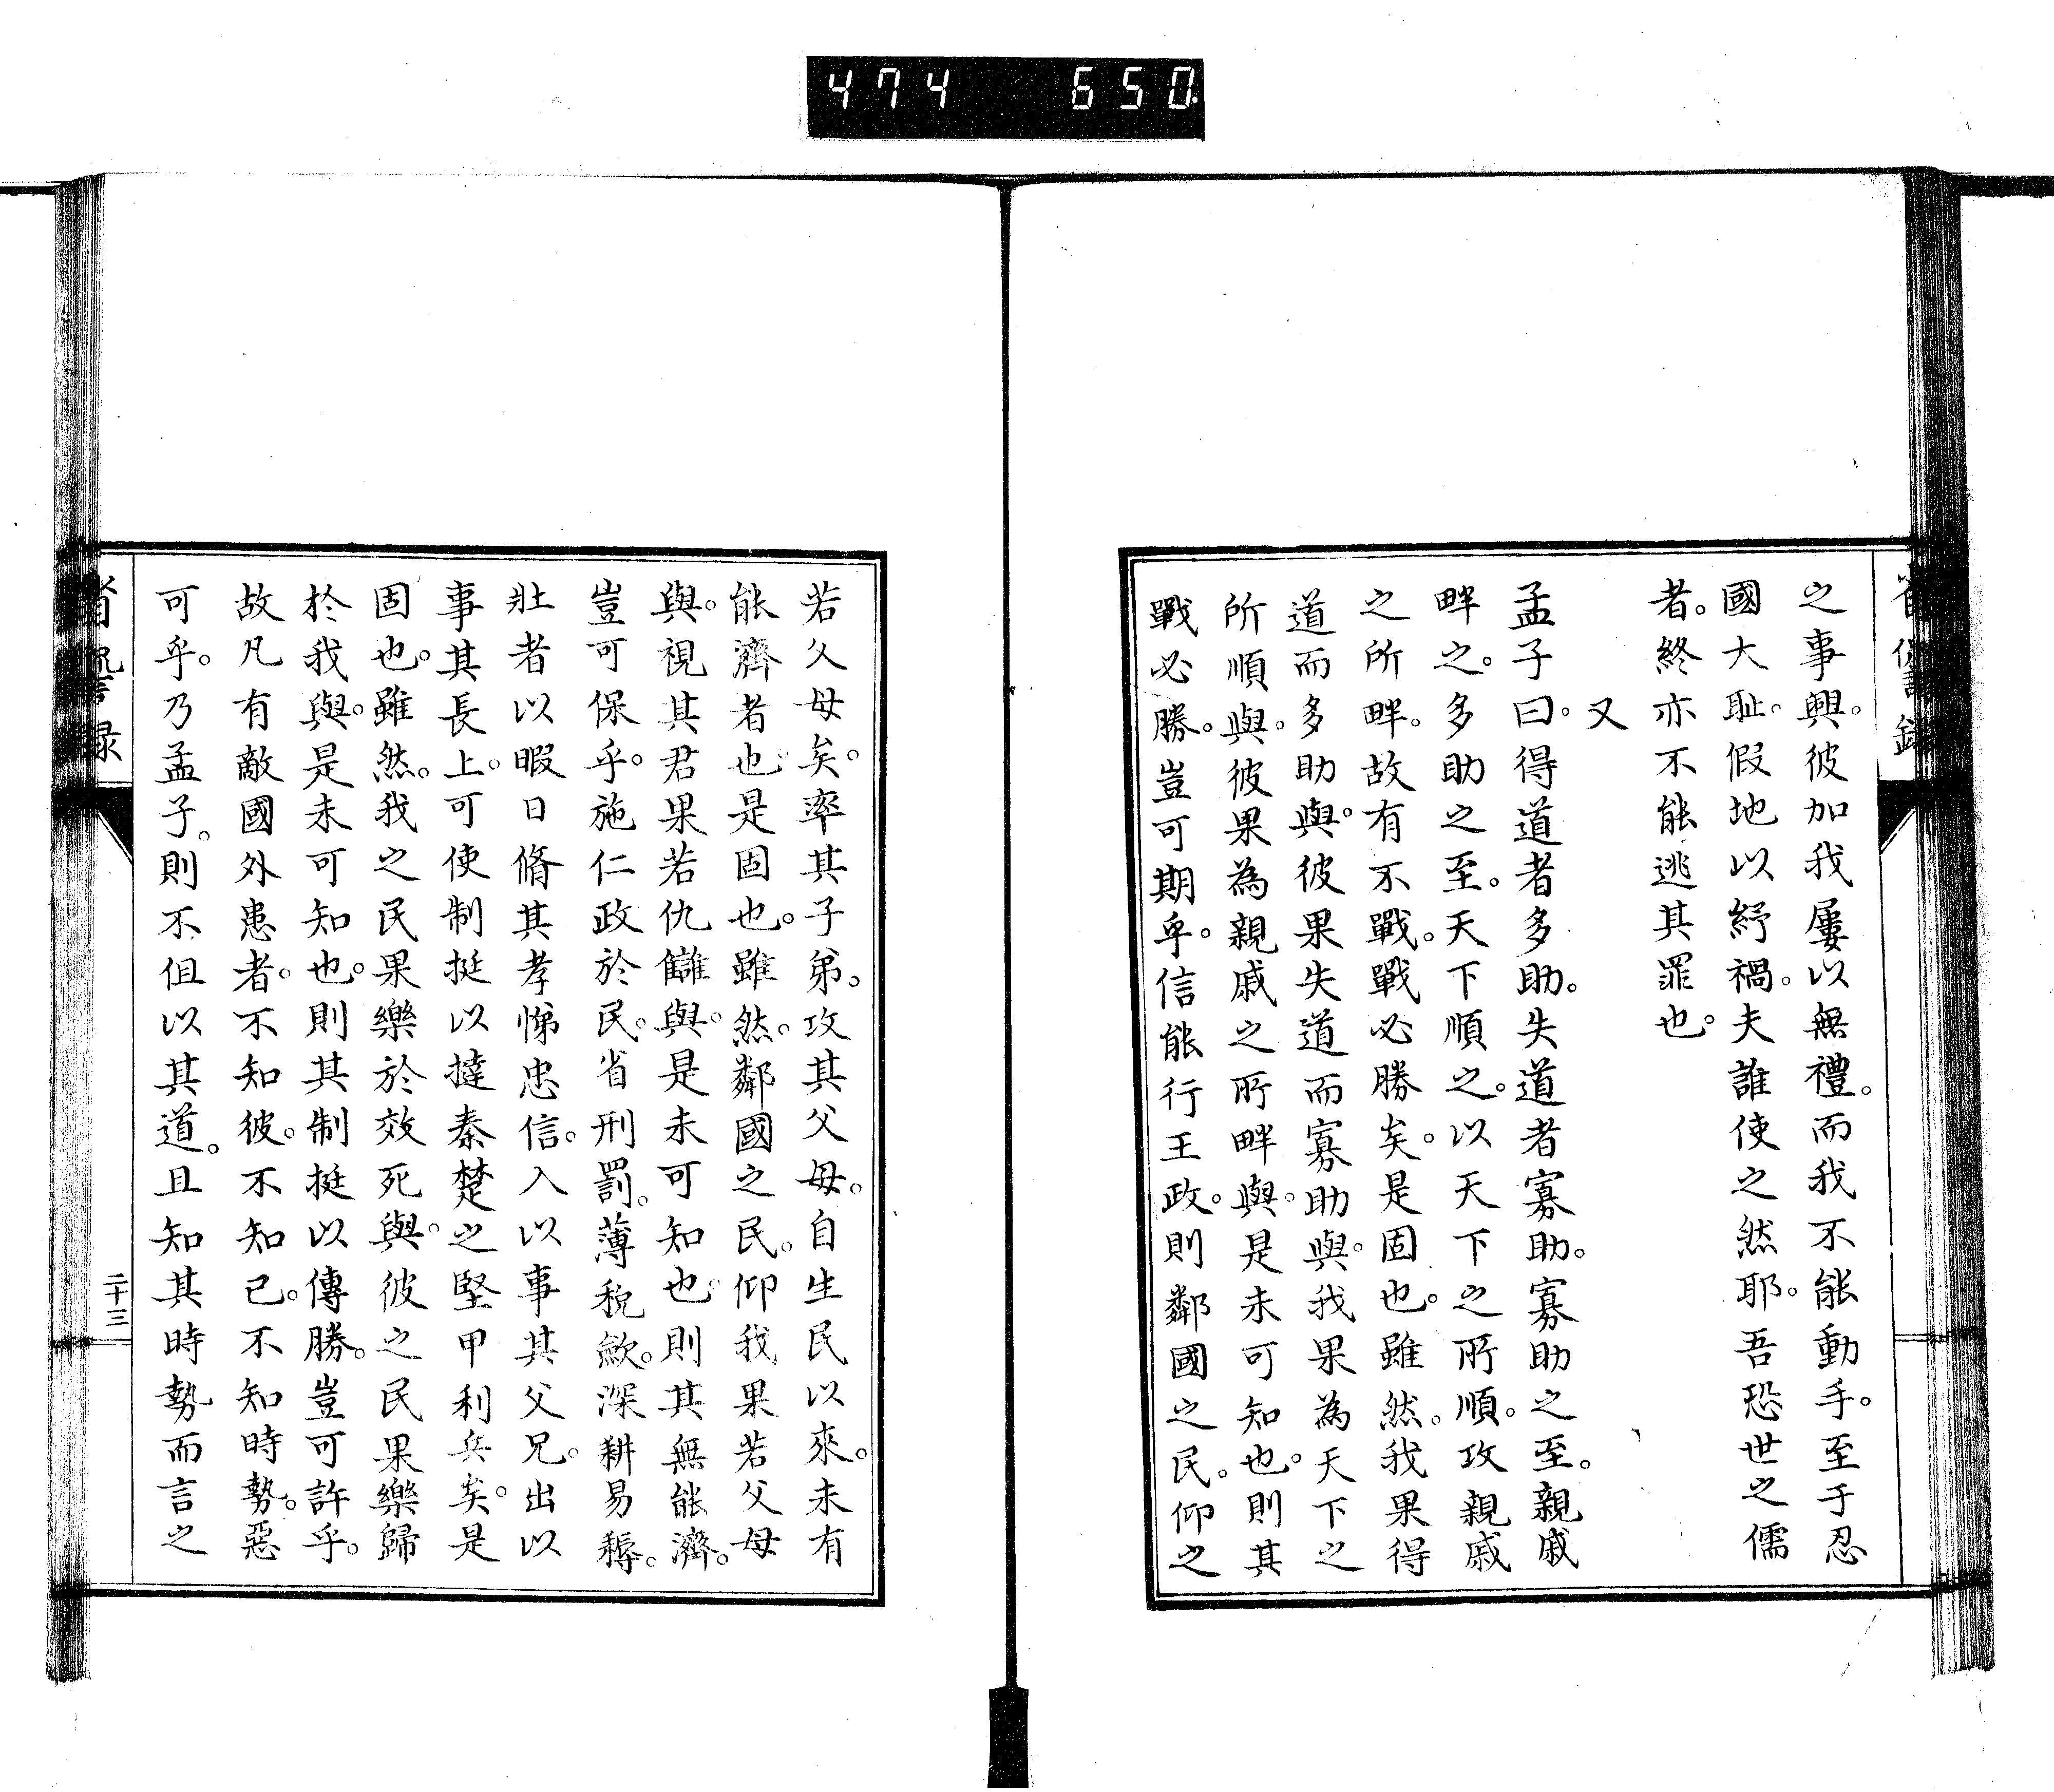 474 650.
之事興。彼加我屢以無禮。而我不能動手。至于忍
國大耻。假地以紓禍。夫誰使之然耶。吾恐世之儒
者。終亦不能逃其罪也。
又
孟子曰。得道者多助。失道者寡助。寡助之至。親戚
畔之。多助之至。天下順之。以天下之所順。攻親戚
之所畔。故有不戰。戰必勝矣。是固也。雖然。我果得
道而多助與。彼果失道而寡助與。我果為天下之
所順與。彼果為親戚之所畔與。是未可知也。則其
戰必勝。豈可期乎。信能行王政。則鄰國之民。仰之
若父母矣。率其子弟。攻其父母。自生民以來。未有
能濟者也。是固也。雖然。鄰國之民。仰我果若父母
與。視其君果若仇讎與。是未可知也。則其無能濟。
豈可保乎。施仁政於民。省刑罰。薄稅歛。深耕易耨。
壯者以暇日脩其孝悌忠信。入以事其父兄。出以
事其長上。可使制挺以撻秦楚之堅甲利兵矣。是
固也。雖然。我之民果樂於效死與。彼之民果樂歸
於我與。是未可知也。則其制挺以傳勝。豈可許乎。
故凡有敵國外患者。不知彼。不知己。不知時勢。惡
可乎。乃孟子。則不徂以其道。且知其時勢而言之
省諐録
二十三